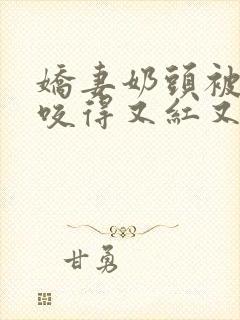 嬌妻奶頭被
咬得又紅又
甘勇